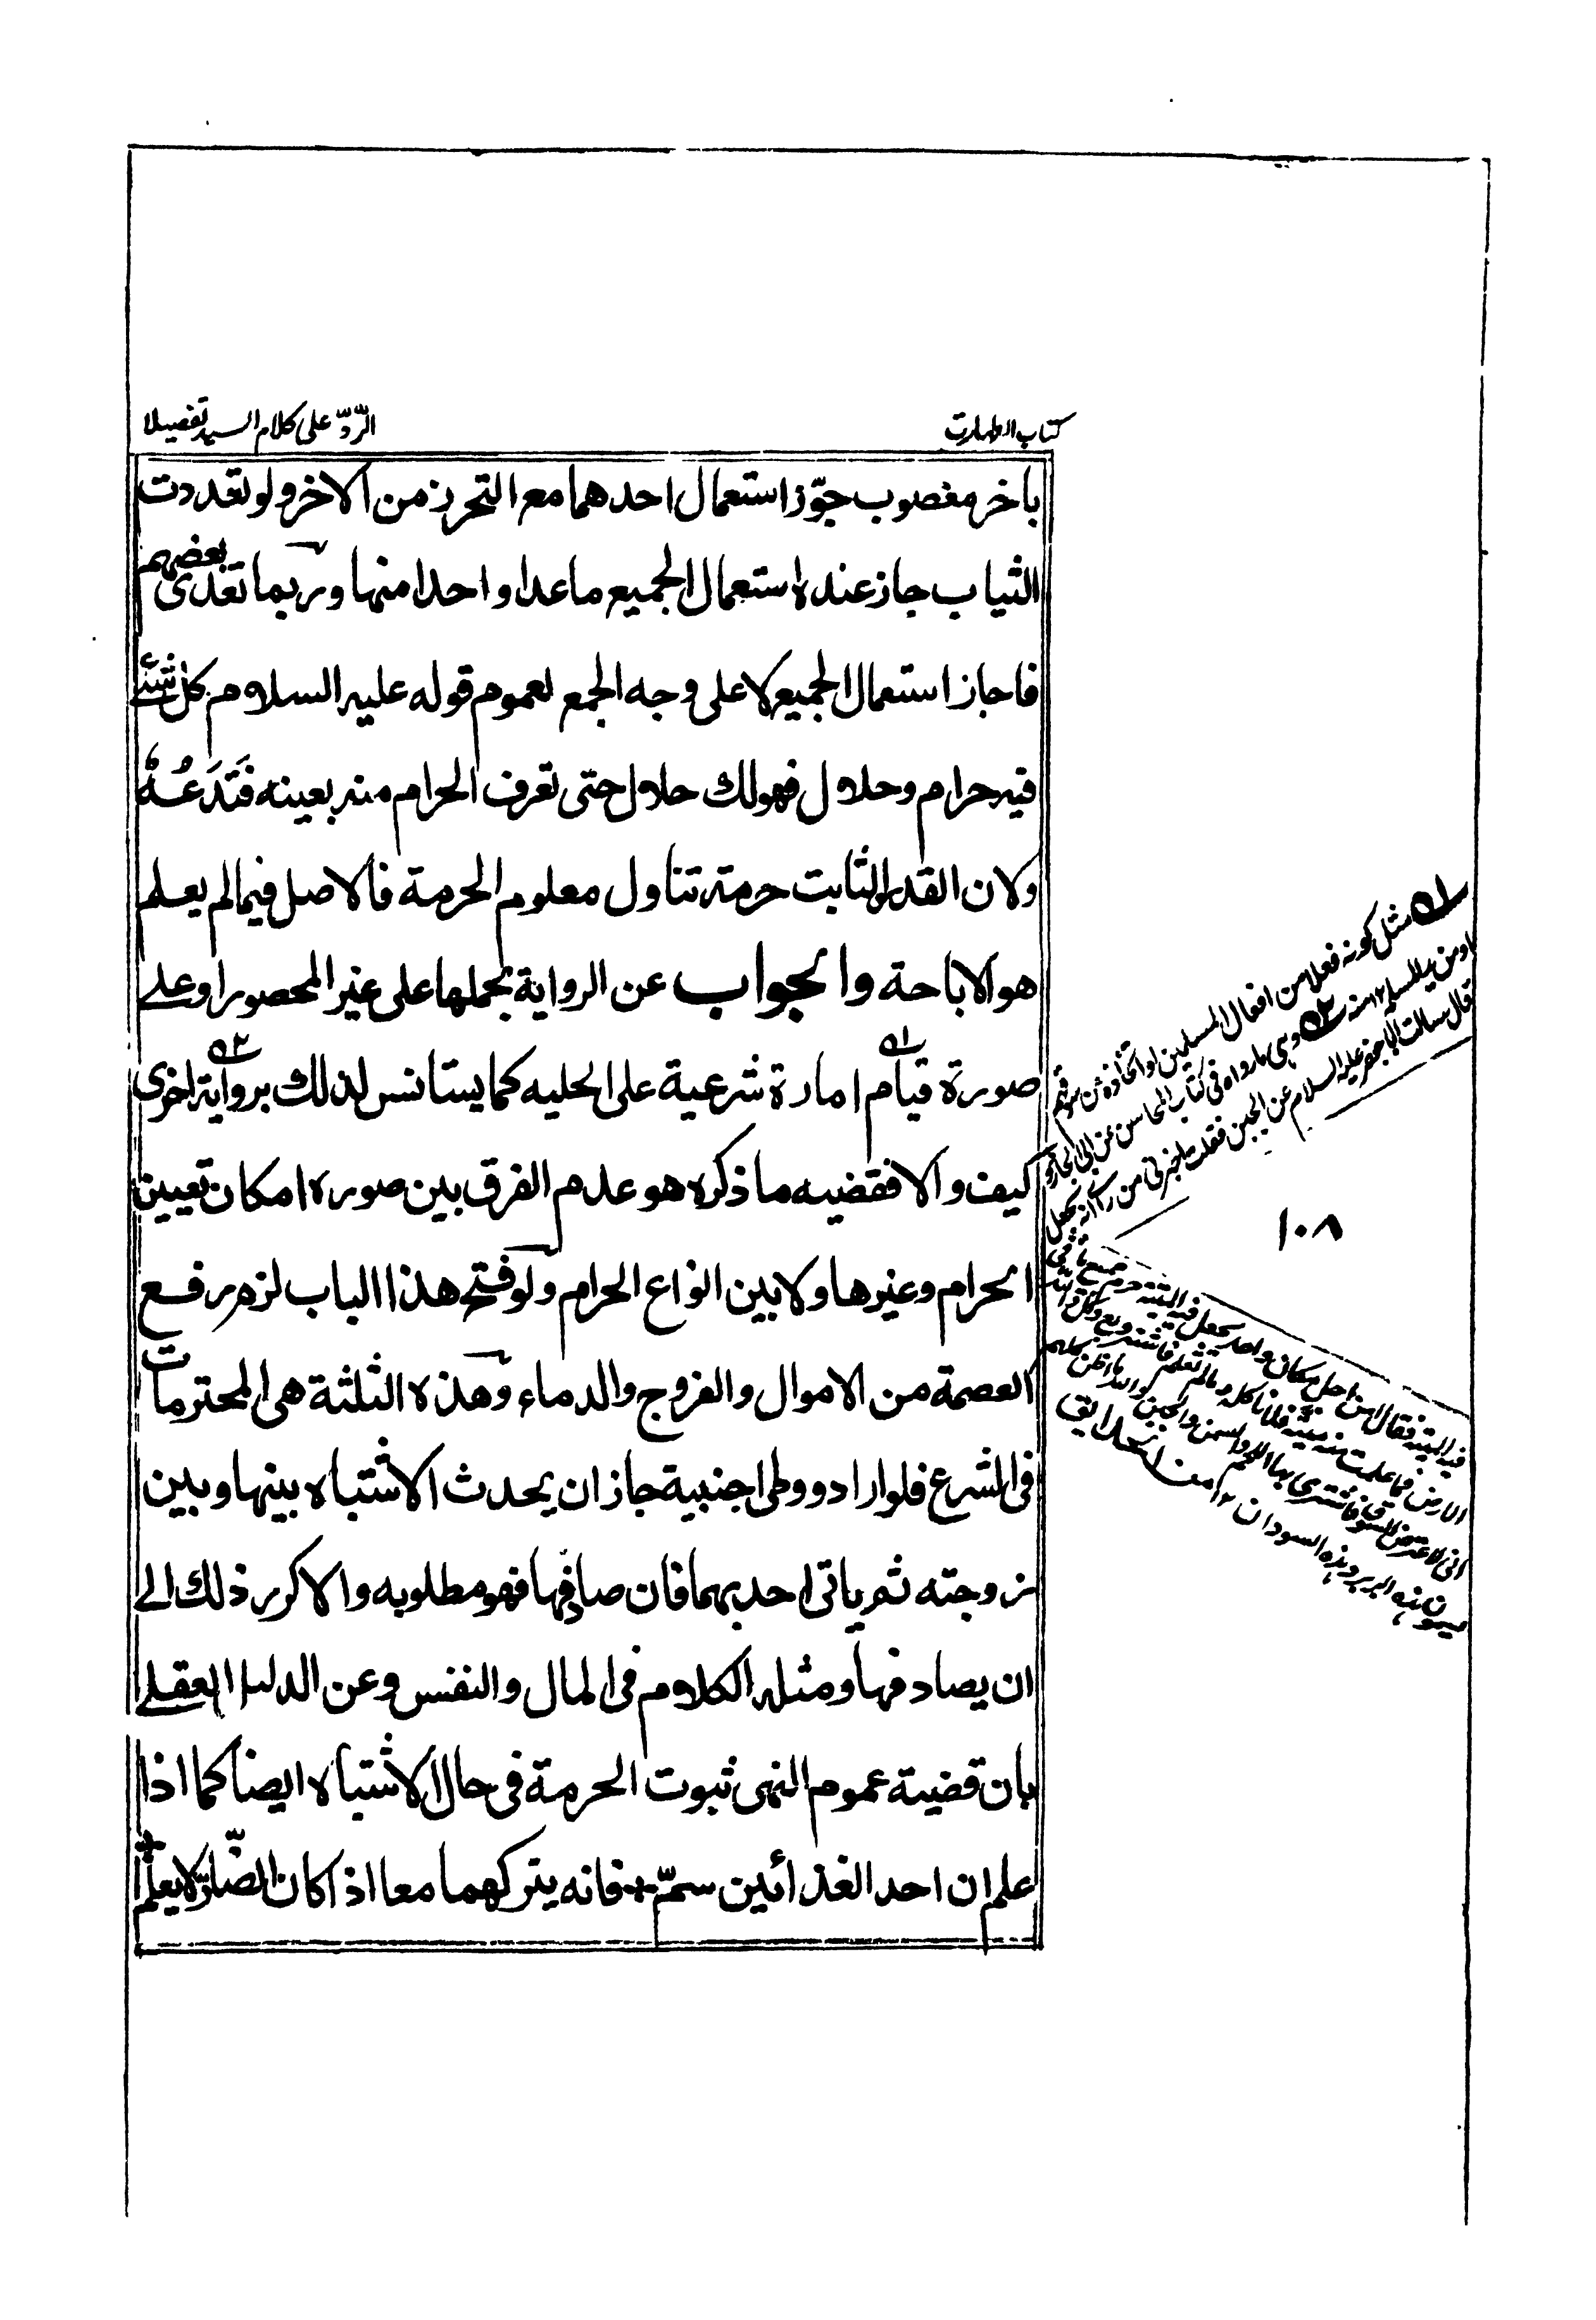 كتاب الطهارت
الرّدّ على كلام السيد تفصيلا
باخر مغصوب جوّز استعمال احدهما مع التحرز من الاخر ولو تعددت
الثياب جاز عنده استعمال الجميع ما عدا واحدا منها وربما تعدى بعضهم
فاجاز استعمال الجميع لا على وجه الجمع لعموم قوله عليه السلام كل شئ
فيه حرام وحلال فهو لك حلال حتى تعرف الحرام منه بعينه فَتَدَعُهُ
ولان القدر الثابت حرمته تناول معلوم الحرمة فالاصل فيما لم يعلم
هو الاباحة والجواب عن الرواية بحملها على غير المحصور او على
صورة قيام امارة شرعية على الحليه كما يستانس لذلك برواية اخرى
كيف والا فقضيه ما ذكره هو عدم الفرق بين صوره امكان تعيين
الحرام وغيرها ولا بين انواع الحرام ولو فتح هذا الباب لزم رفع
العصمة من الاموال والفروج والدماء وهذه الثلثة هى المحترمات
فى الشرع فلو ارادو وطى اجنبية جاز ان يحدث الاشتباه بينها وبين
زوجته ثم ياتى احديهما فان صادفها فهو مطلوبه والا كرر ذلك الى
ان يصادفها ومثله الكلام فى المال والنفس وعن الدليل العقلى
بان قضية عموم النهى ثبوت الحرمة فى حال الاشتباه ايضا كما اذا
علم ان احد الغذائين سمّ فانه يتركهما معا اذا كان الضارّ لا يعلم
ل١٥ مثل كونه فعلا من افعال المسلمين او اتخاذه من سوقهم
او من يد المسلم ١٢ منه ل٢٥ وهى ما رواه فى كتاب المحاسن عن ابى الجارود
قال سالت ابا جعفر عليه السلام عن الجبن فقلت اخبرنى من راى انه يجعل
١٠٨
فيه الميتة فقال امن اجل مكان واحد يجعل فيه الميتة حرم جميع ما فى
الارض فما علمت منه ميتة فلا تاكله وما لم تعلم فاشتر وبع وكل والله
انى لاعترض السوق فاشترى بها اللحم والسمن والجبن والله ما اظن كلهم
يسمون هذه البربر وهذه السودان ١٢ من الحدايق